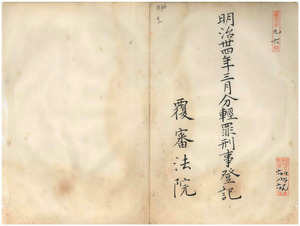 明治卅四年三月分輕罪刑事登記
覆審法院